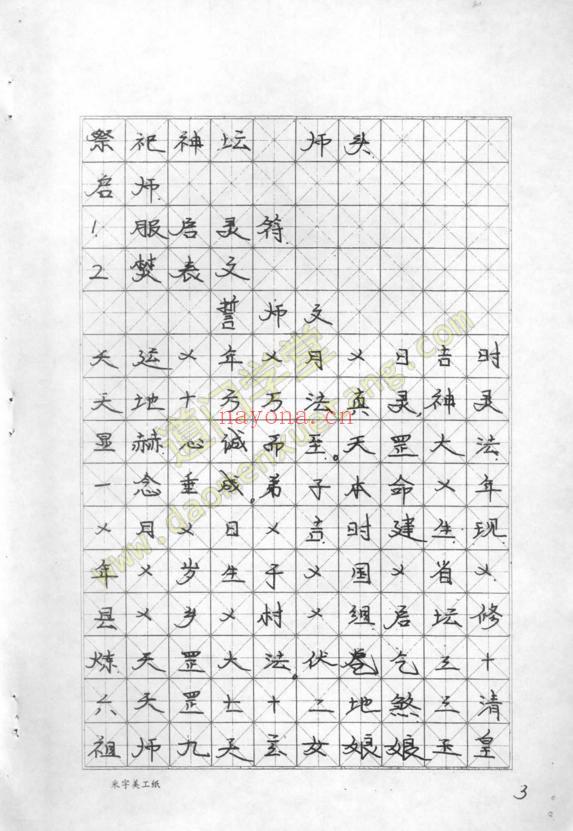 祭祀神坛 师头
启师
1. 服启灵符
2 焚表文
誓师文
天运㐅年㐅月㐅日吉时
天地十方万法真灵,神灵
显赫心诚而至。天罡大法
一念垂成。弟子本命㐅年
㐅月㐅日㐅吉时建生现
年㐅岁生于㐅国㐅省㐅
县㐅乡㐅村㐅组启坛修
炼天罡大法。伏乞三十
六天罡七十二地煞三清
祖师九天玄女娘娘玉皇
米字美工纸
3
道门学堂
www.daomenxuetang.com
nayona.cn